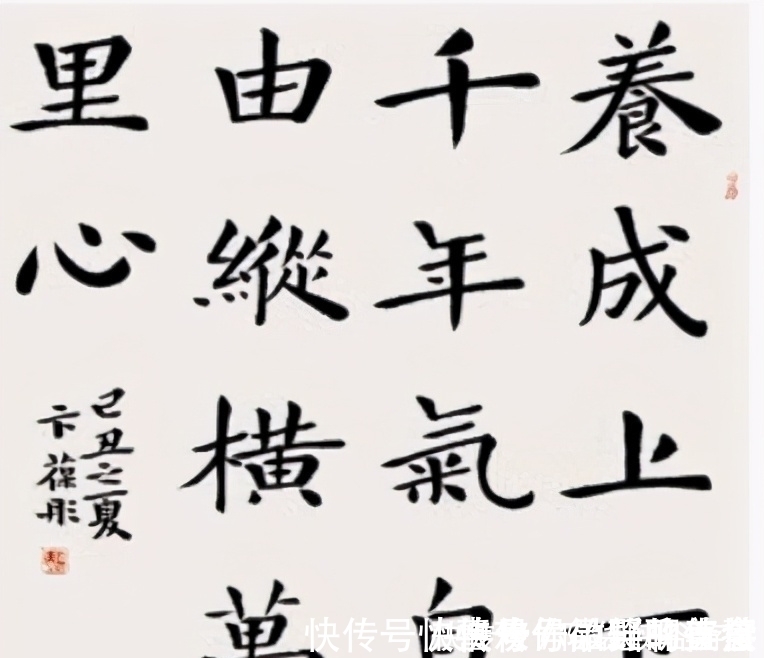 養成上下
千年氣自
由縱橫萬
里心
己丑之夏
卞葆彤
快传号